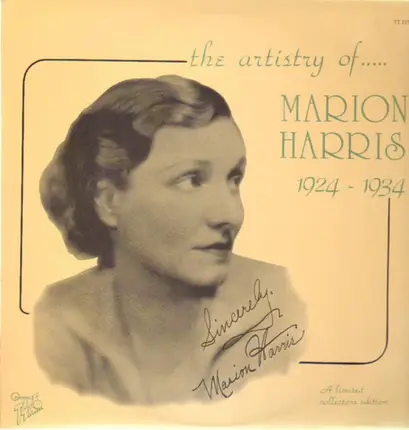 the artistry of.....
MARION
HARRIS
1924 - 1934
Sincerely,
Marion Harris
A limited
collectors edition